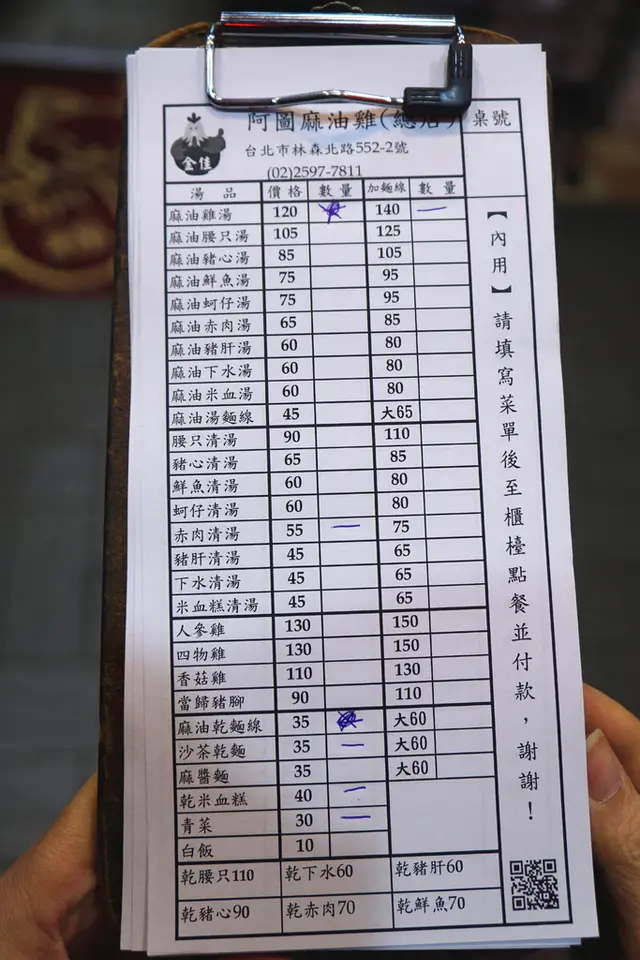 阿圖麻油雞(總店) 桌號
金佳
台北市林森北路552-2號
(02)2597-7811
湯品 價格 數量 加麵線 數量
麻油雞湯 120 140 一
麻油腰只湯 105 125
麻油豬心湯 85 105
麻油鮮魚湯 75 95
麻油蚵仔湯 75 95
麻油赤肉湯 65 85
麻油豬肝湯 60 80
麻油下水湯 60 80
麻油米血湯 60 80
麻油湯麵線 45 大65
腰只清湯 90 110
豬心清湯 65 85
鮮魚清湯 60 80
蚵仔清湯 60 80
赤肉清湯 55 一 75
豬肝清湯 45 65
下水清湯 45 65
米血糕清湯 45 65
人參雞 130 150
四物雞 130 150
香菇雞 110 130
當歸豬腳 90 110
麻油乾麵線 35 大60
沙茶乾麵 35 一 大60
麻醬麵 35 大60
乾米血糕 40 一
青菜 30 一
白飯 10
乾腰只110 乾下水60 乾豬肝60
乾豬心90 乾赤肉70 乾鮮魚70
【內用】請填寫菜單後至櫃檯點餐並付款，謝謝！